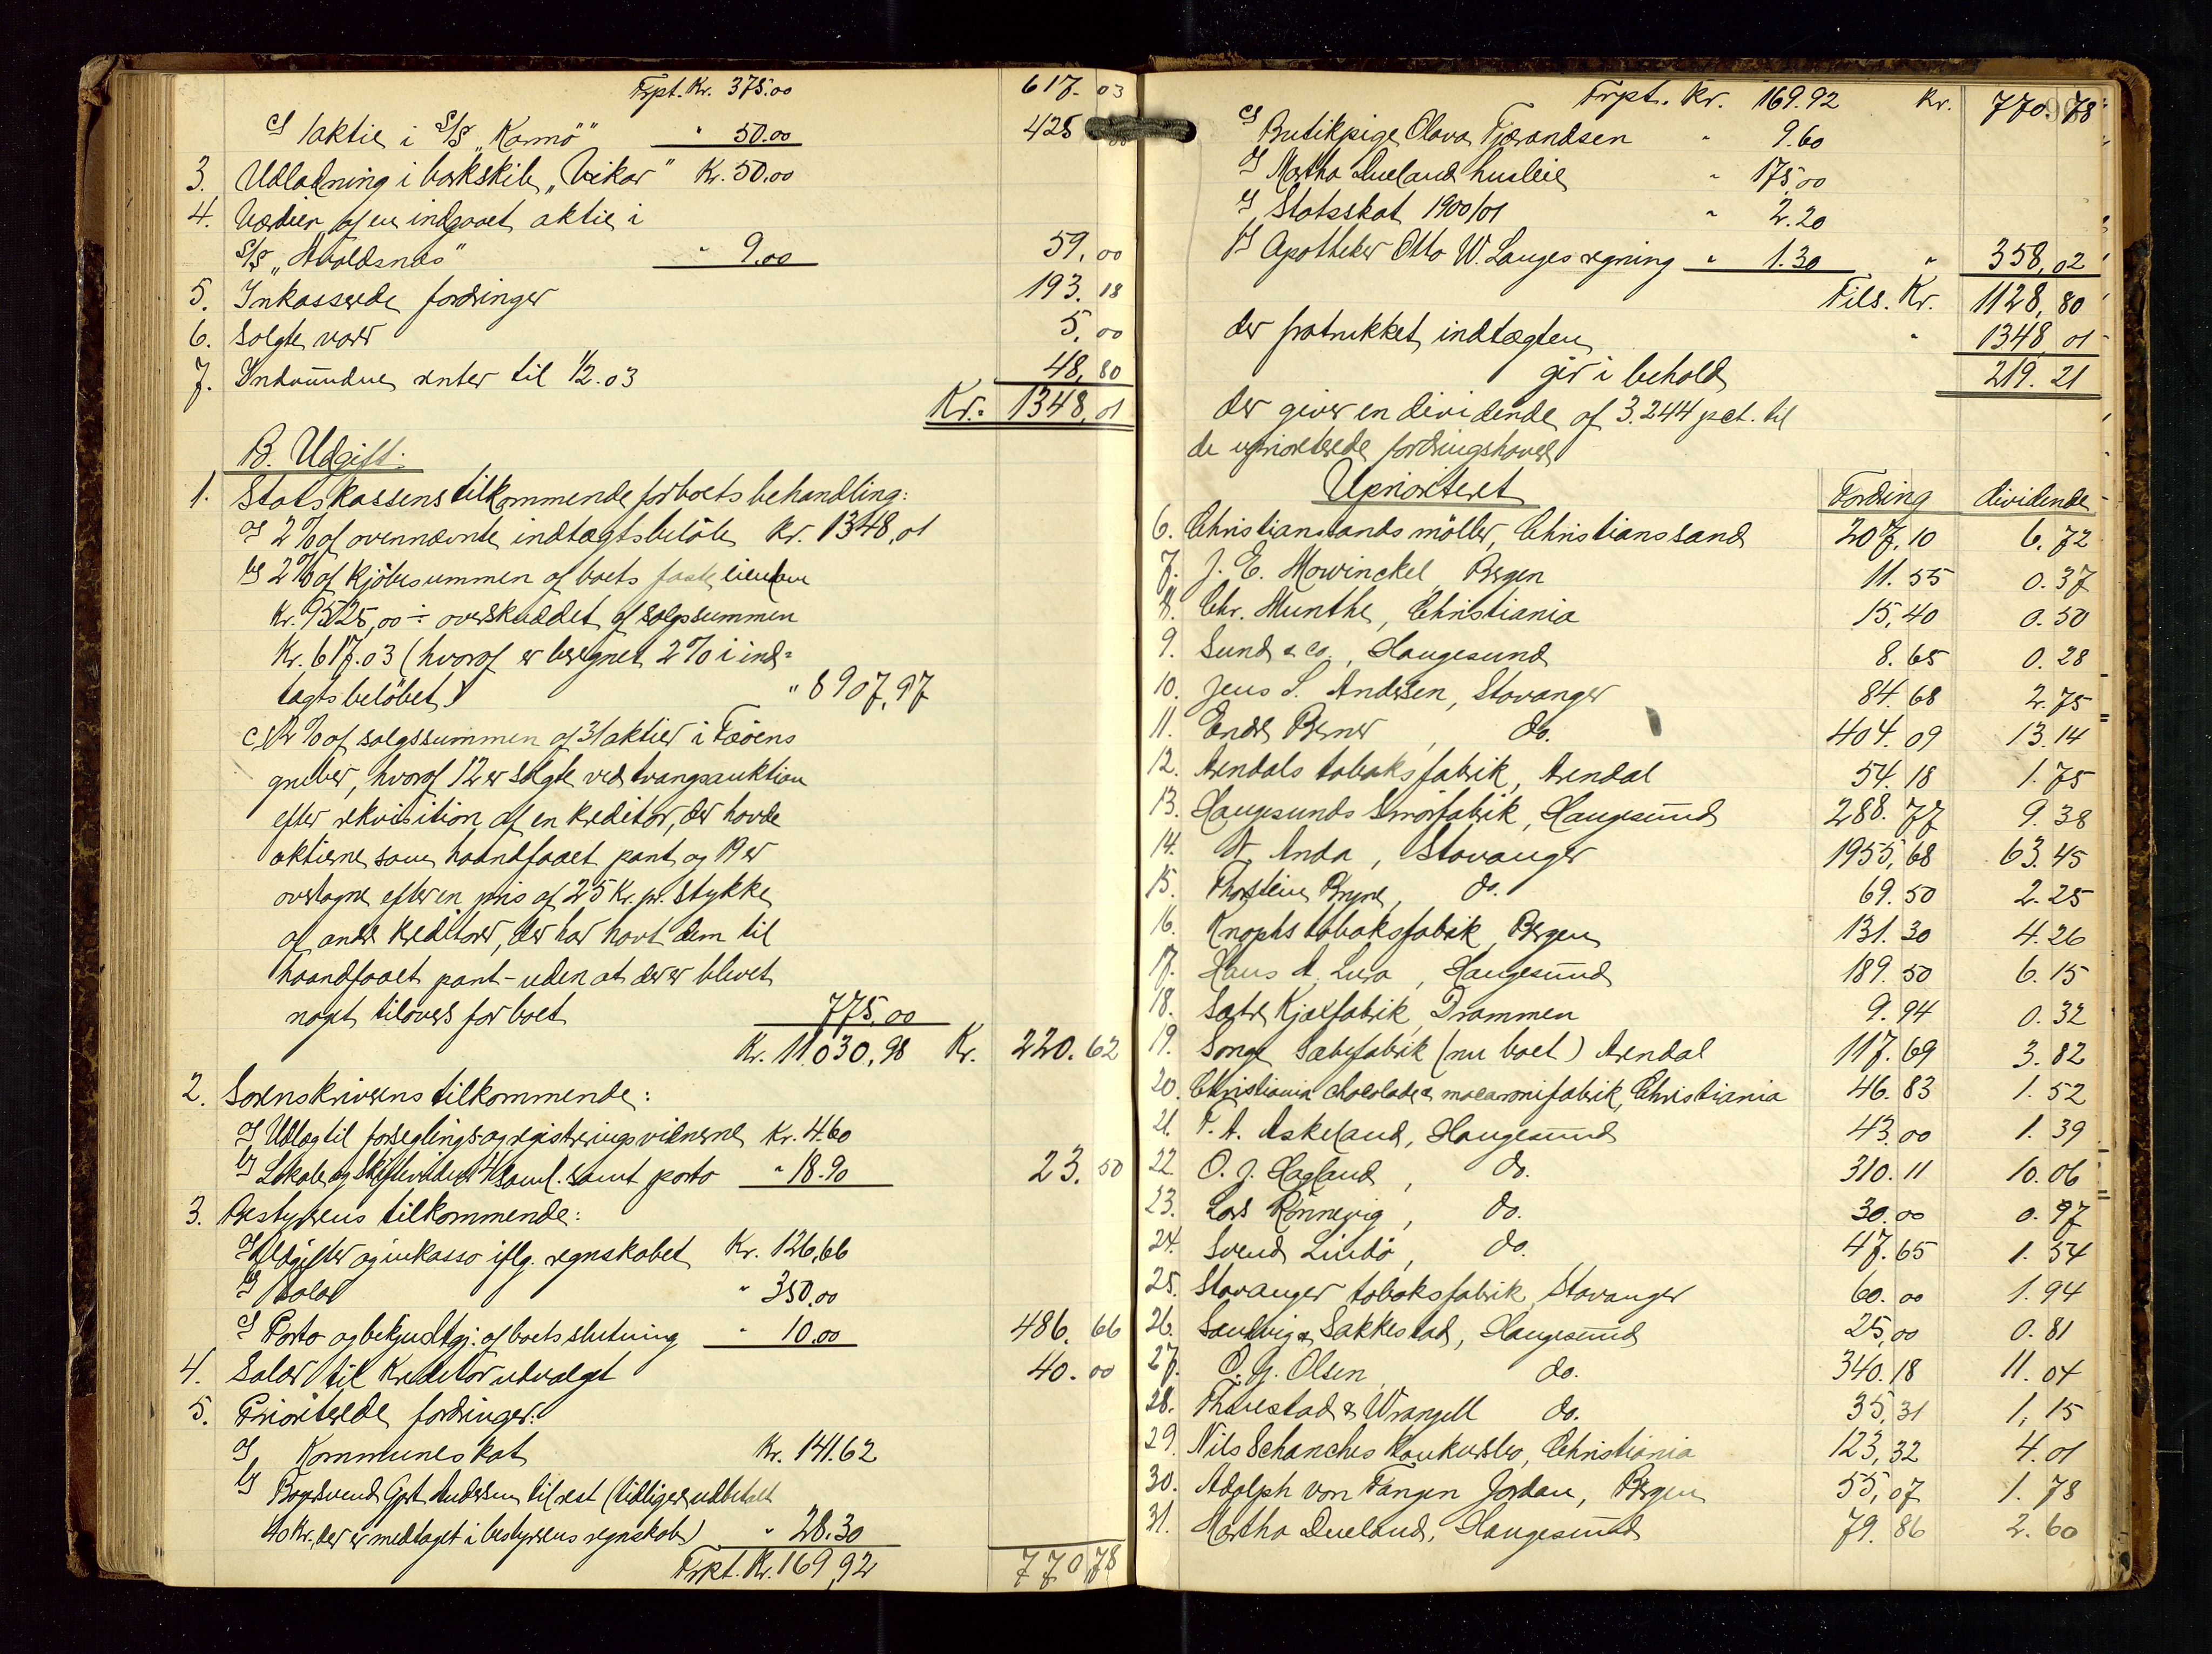 Frpt. Kr. 375.00 617. 03
c) 1 aktie i S/S „Karmö” " 50.00 425
3. Udladning i barkskib „Vikar” Kr. 50.00
4. Værdien af en indgaaet aktie i
S/S „Avaldsnes” " 9.00 59,00
5. Inkasserede fordringer 193.18
6. Solgte varer 5,00
7. Indvundne renter til 1/2.03 48,80
Kr. 1348,01
B. Udgift:
1. Statskassens tilkommende for boets behandling:
a) 2% af ovennævnte indtægtsbelöb Kr. 1348,01
b) 2% af kjöbesummen af boets faste eiendom
Kr. 9525,00 ÷ overskuddet af salgssummen
Kr. 617.03 (hvoraf er beregnet 2% i ind-
tægtsbelöbet) " 8907,97
c) 2% af salgssummen af 31 aktier i Feöens
gruber, hvoraf 12 er solgte ved tvangsauktion
efter rekvisition af en kreditor, der havde
aktierne som haandfaaet pant og 19 er
overtagne efter en pris af 25 Kr. pr. stykke
af andre kreditorer, der har havt dem til
haandfaaet pant - uden at der er blevet
noget tilovers for boet 775,00
Kr. 11,030,98 Kr. 220.62
2. Sorenskriverens tilkommende:
a) Udlæg til forseglings- og registreringsvidnerne Kr. 4.60
b) Lokale og Skiftevidner 4 saml. samt porto " 18.90 23.50
3. Bestyrerens tilkommende:
a) Udgifter og inkasso iflg. regnskabet Kr. 126,66
b) Salær " 350,00
c) Porto og bekjendtgj. af boets slutning " 10.00 486.66
4. Salær til Kreditorudvalget 40.00
5. Prioriterede fordringer:
a) Kommuneskat Kr. 141.62
b) Bagersvend Gert Andersen til rest (tidligere udbetalt
40 Kr., der er medtaget i bestyrerens regnskab) " 28.30
Frpt. Kr. 169,92 770 78
Frpt. Kr. 169.92 Kr. 770.78
c) Butikpige Olava Tjærandsen " 9.60
d) Martha Dueland husleie " 175,00
e) Statsskat 1900/01 " 2.20
f) Apotheker Otto W. Langes regning " 1.30 " 358,02
Tils. Kr. 1128,80
der fratrukket indtægten " 1348,01
gir i behold 219.21
der giver en dividende af 3.244 pct. til
de uprioriterede fordringshavere
Uprioriteret Fordring dividende
6. Christianssands möller, Christianssand 207.10 6.72
7. J. E. Mowinckel, Bergen 11.55 0.37
8. Chr. Munthe, Christiania 15,40 0.50
9. Sund & co., Haugesund 8.65 0.28
10. Jens S. Andersen, Stavanger 84.68 2.75
11. Endre Berner, do. 404.09 13.14
12. Arendals tobaksfabrik, Arendal 54.18 1.75
13. Haugesunds Smörfabrik, Haugesund 288.77 9.38
14. N. Anda, Stavanger 1955,68 63.45
15. Thorstein Bryne, do. 69.50 2.25
16. Knophs tobaksfabrik, Bergen 131.30 4.26
17. Hans A. Lura, Haugesund 189.50 6.15
18. Sætre Kjæxfabrik, Drammen 9.94 0.32
19. Songe Sæbefabrik (nu boet) Arendal 117.69 3.82
20. Christiania chocolade & macaronifabrik, Christiania 46.83 1.52
21. T. A. Askeland, Haugesund 43.00 1.39
22. O. J. Hagland, do. 310.11 10.06
23. Lars Rönnevig, do. 30.00 0.97
24. Svend Lindö, do. 47.65 1.54
25. Stavanger tobaksfabrik, Stavanger 60.00 1.94
26. Sandvig & Sakkestad, Haugesund 25,00 0.81
27. O. G. Olsen, do. 340.18 11.04
28. Thuestad & Wrangell do. 35,31 1,15
29. Nils Schanches konkursbo, Christiania 123,32 4.01
30. Adolph von Tangen Jordan, Bergen 55,07 1.78
31. Martha Dueland, Haugesund 79.86 2.60